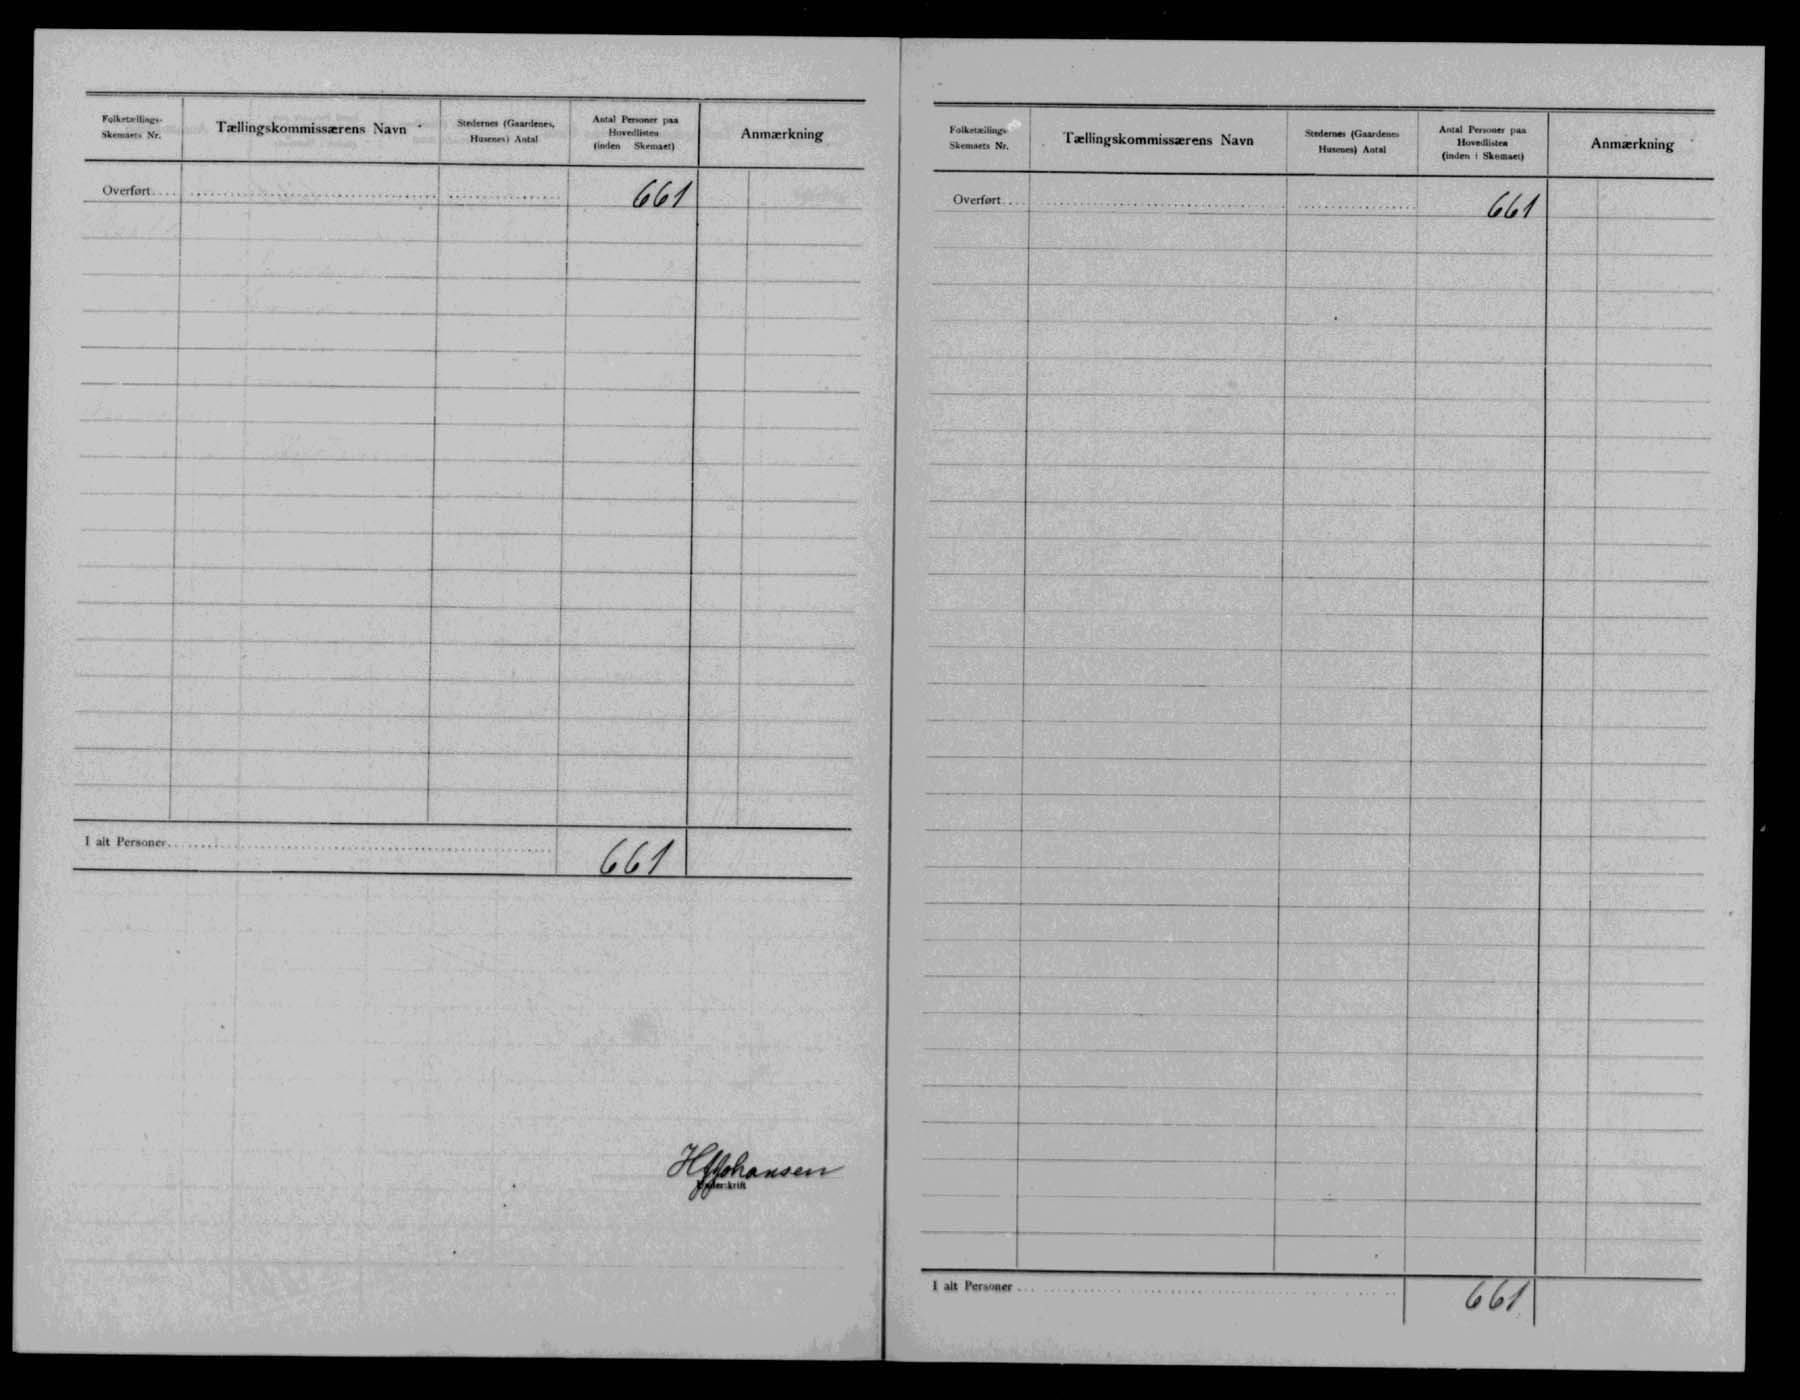 Folketællings-
Skemaets Nr.
Tællingskommissærens Navn
Stedernes (Gaardenes,
Husenes) Antal
Antal Personer paa
Hovedlisten
(inden Skemaet)
Anmærkning
Overført
661
I alt Personer
661
HJJohansen
Underskrift
Folketællings-
Skemaets Nr.
Tællingskommissærens Navn
Stedernes (Gaardenes
Husenes) Antal
Antal Personer paa
Hovedlisten
(inden i Skemaet)
Anmærkning
Overført
661
I alt Personer
661